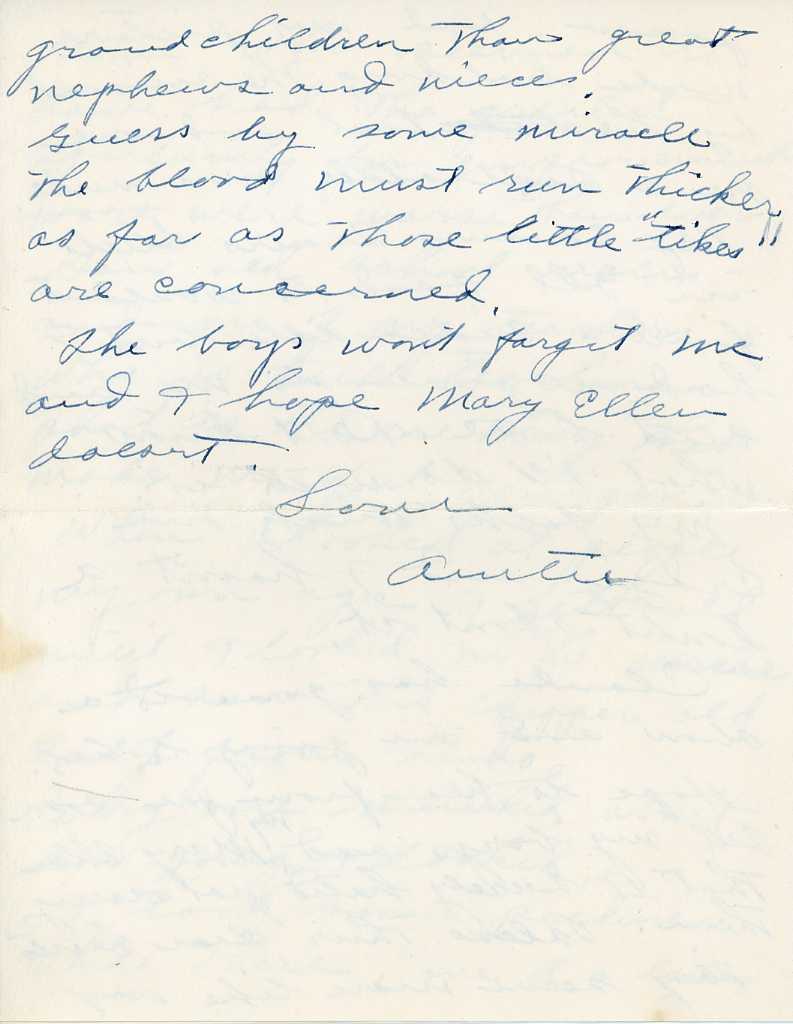 grandchildren than great
nephews and nieces.
Guess by some miracle
the blood must run thicker,
as far as those little "tikes"
are concerned.
The boys wont forget me
and I hope Mary Ellen
doesnt.
Love
Auntie